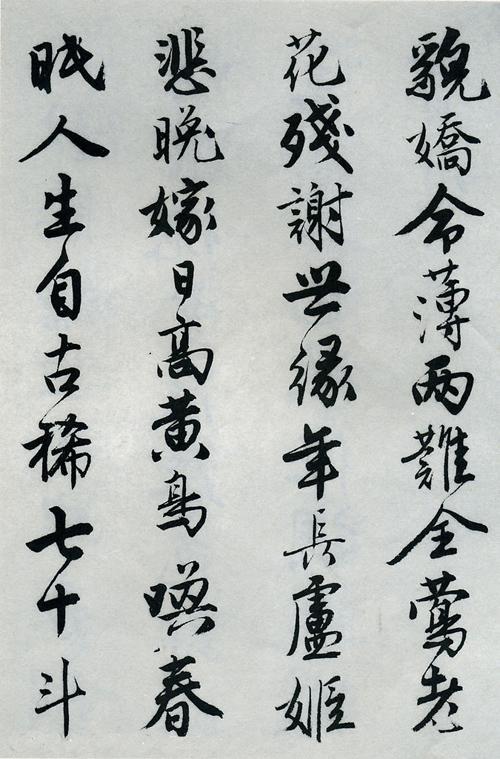 貌嬌命薄两難全鶯老
花殘謝世緣年長盧姬
悲晚嫁日高黃鳥喚春
眠人生自古稀七十斗